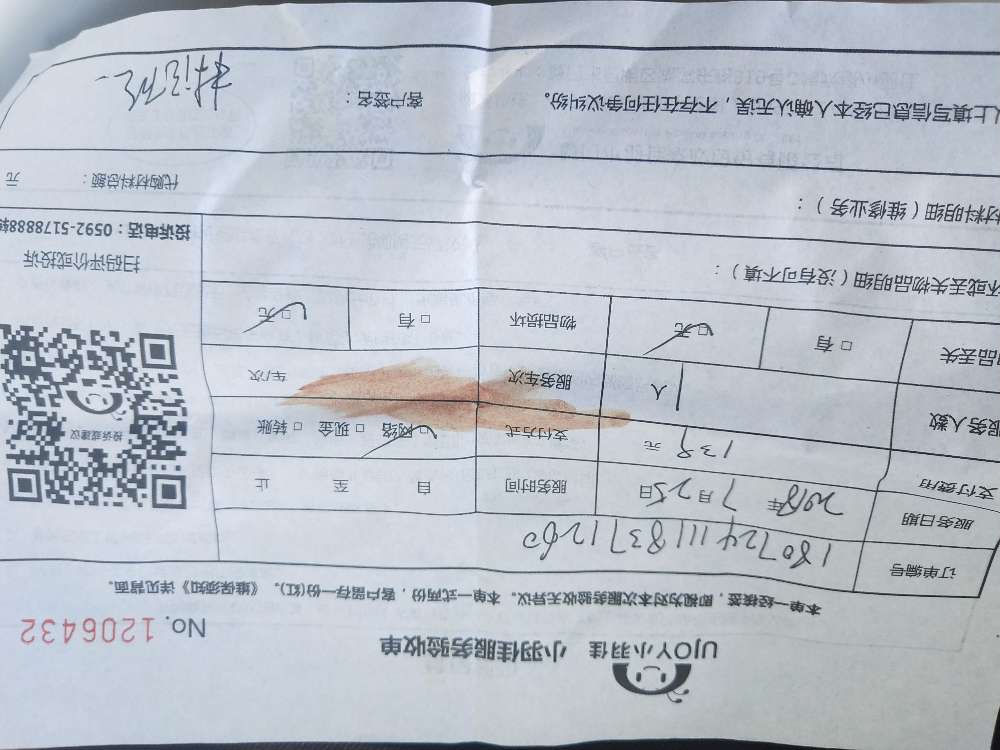 UJOY小羽佳 小羽佳服务验收单
No. 1206432
本单一经接签，即视为对本次服务验收无异议。本单一式两份，客户留存一份(红)。《维保须知》详见背面。
订单编号 1807241118371260
服务日期 2018年7月25日 服务时间 自 至 止
支付费用 139元 支付方式 ☑网络 □现金 □转账
服务人数 1人 服务车次 车/次
品丢失 □有 ☑无 物品损坏 □有 ☑无
坏或丢失物品明细（没有可不填）：
投诉或建议
扫码评价或投诉
投诉电话：0592-5178888转
材料明细（维修业务）：
代购材料总额： 元
以上填写信息已经本人确认无误，不存在任何争议纠纷。 客户签名：